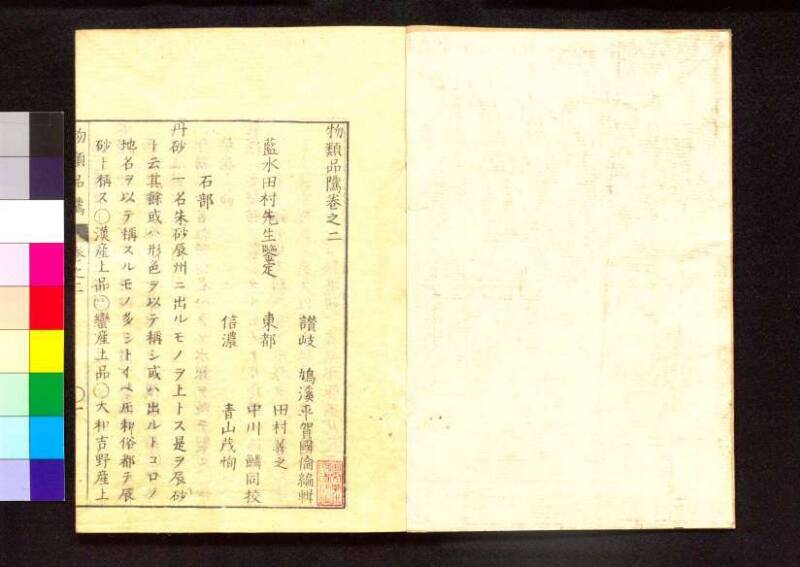 物類品隲卷之二
讃岐 鳩溪平賀國倫編輯
藍水田村先生鑒定
田村善之
東都
中川鱗同挍
信濃 青山茂恂
石部
丹砂 一名朱砂辰州ニ出ルモノヲ上トス是ヲ辰砂
ト云其餘或ハ形色ヲ以テ稱シ或ハ出ルトコロノ
地名ヲ以テ稱スルモノ多シトイヘ𪜈和俗都テ辰
砂ト稱ス○漢産上品○蠻産上品○大和吉野産上
物類品隲